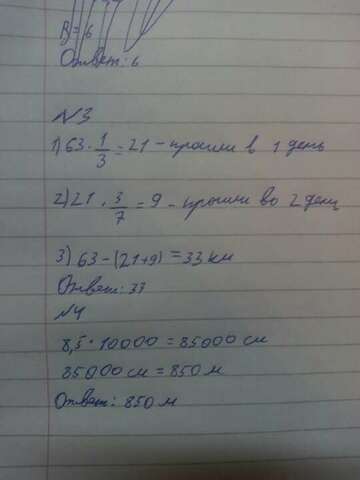 B = 6
Ответ: 6
№3
1) 63 · 1/3 = 21 - прошли в 1 день
2) 21 · 3/7 = 9 - прошли во 2 день
3) 63 - (21+9) = 33 км
Ответ: 33
№4
8,5 · 10000 = 85000 см
85000 см = 850 м
Ответ: 850 м